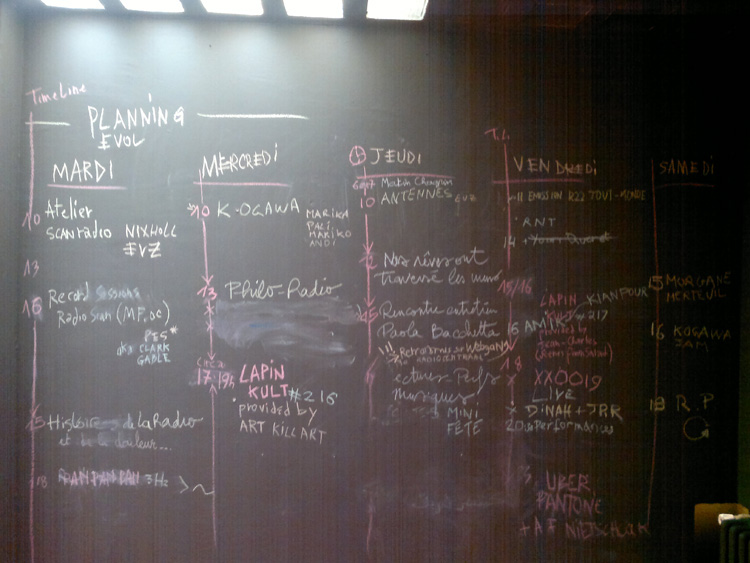 TimeLine
PLANNING
EVOL
MARDI
10 Atelier
scanradio NIXHOLL
EVZ
13
16 Record Sessions
Radio Scan (MP, oc)
PES*
aka CLARK
GABLE
Histoire de la Radio
et de la douleur...
18 3Hz
MERCREDI
10 K.OGAWA
MARIKA
PALI
MARIKO
ANDI
13 Philo-Radio
17-19h LAPIN
KULT #216
provided by
ART KILL ART
JEUDI
10 ANTENNES EVZ
Nos rêves ont
traversé les murs
15 Rencontre entretien
Paola Bacchetta
RADIO CENTRALE
Lectures Perfs
musiques
MINI
FÊTE
T.L.
VENDREDI
11 EMISSION R22 TOUT-MONDE
RNT
14
15/16 LAPIN KIANPOUR
KULT #217
16 AMIR
Jean-Charles
18
XXOO19
Live
DINAH + JRR
20 Performances
UBER
PANTONE
SAMEDI
15 MORGANE
MERTEUIL
16 KOGAWA
JAM
18 R.P